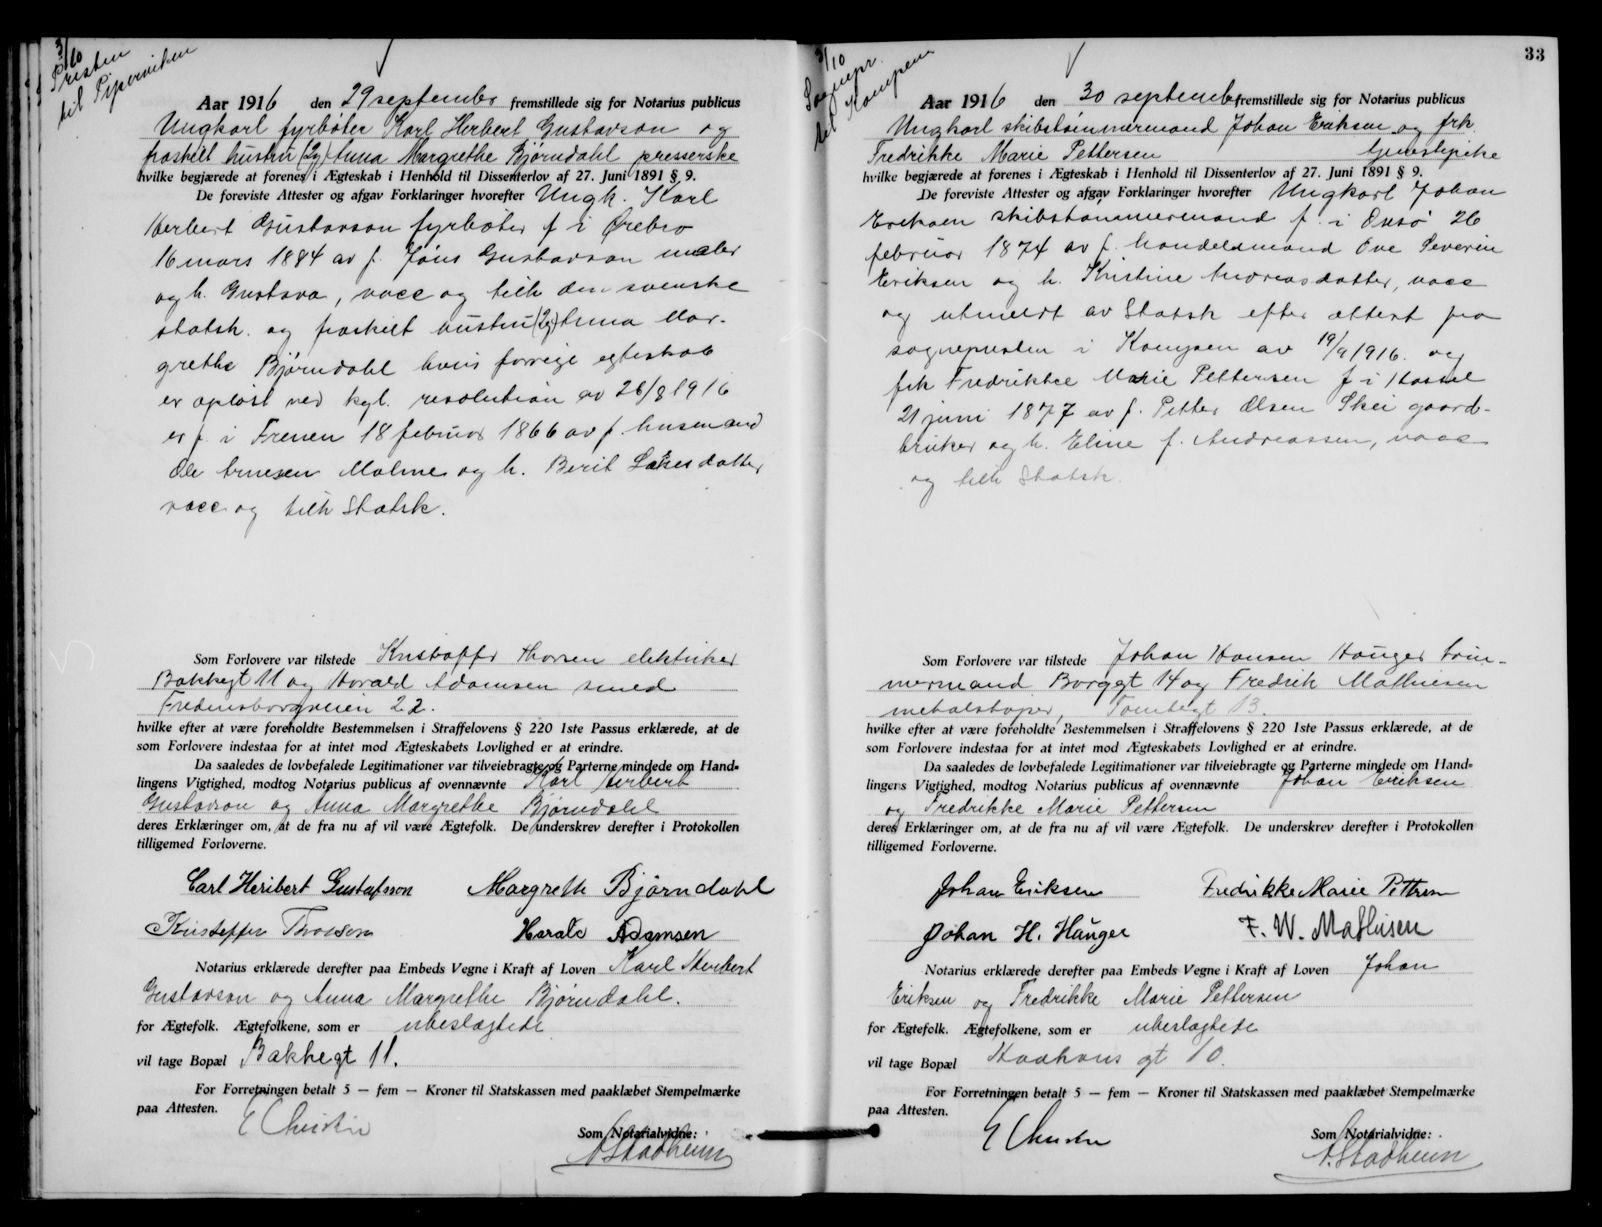 3/10
Presten
til Piperviken
Aar 1916 den 29 september fremstillede sig for Notarius publicus
Ungkarl fyrbøter Karl Herbert Gustavson og
fraskilt hustru (2g) Anna Margrethe Bjørndahl presserske
hvilke begjærede at forenes i Ægteskab i Henhold til Dissenterlov af 27. Juni 1891 § 9.
De foreviste Attester og afgav Forklaringer hvorefter Ungk. Karl
Herbert Gustavson fyrbøter f i Ørebro
16 mars 1884 av f. Jöns Gustavson maler
og h. Gustava, vacc og tilh den svenske
statsk. og fraskilt hustru (2g) Anna Mar-
grethe Bjørndahl hvis forrige egteskab
er opløst ved kgl. resolution av 26/8 1916
er f. i Frenen 18 februar 1866 av f. husmand
Ole Arnesen Malme og h. Berit Larsdatter
vacc og tilh Statsk.
Som Forlovere var tilstede Kristoffer Thorsen elektriker
Bakkegt 11 og Harald Adamsen smed
Fredensborgveien 22.
hvilke efter at være foreholdte Bestemmelsen i Straffelovens § 220 1ste Passus erklærede, at de
som Forlovere indestaa for at intet mod Ægteskabets Lovlighed er at erindre.
Da saaledes de lovbefalede Legitimationer var tilveiebragte og Parterne mindede om Hand-
lingens Vigtighed, modtog Notarius publicus af ovennævnte Karl Herbert
Gustavson og Anna Margrethe Bjørndahl
deres Erklæringer om, at de fra nu af vil være Ægtefolk. De underskrev derefter i Protokollen
tilligemed Forloverne.
Carl Heribert Gustafsson Margreth Bjørndahl
Kristoffer Thorsen Harald Adamsen
Notarius erklærede derefter paa Embeds Vegne i Kraft af Loven Karl Herbert
Gustavson og Anna Margrethe Bjørndahl.
for Ægtefolk. Ægtefolkene, som er ubeslægtede
vil tage Bopæl Bakkegt 11.
For Forretningen betalt 5 — fem — Kroner til Statskassen med paaklæbet Stempelmærke
paa Attesten.
E Christie
Som Notarialvidne:
A. Stadheim
33
3/10
Sognepr.
til Kampen
Aar 1916 den 30 september fremstillede sig for Notarius publicus
Ungkarl skibstømmermand Johan Eriksen og frk.
Fredrikke Marie Pettersen tjenestepike
hvilke begjærede at forenes i Ægteskab i Henhold til Dissenterlov af 27. Juni 1891 § 9.
De foreviste Attester og afgav Forklaringer hvorefter Ungkarl Johan
Eriksen skibstømmermand f. i Onsø 26
februar 1874 av f. handelsmand Ove Severin
Eriksen og h. Kristine Andreasdatter, vacc
og utmeldt av Statsk efter attest fra
sognepresten i Kampen av 19/9 1916. og
frk Fredrikke Marie Pettersen f i Hassel
21 juni 1877 av f. Petter Olsen Skei gaard-
bruker og h. Eline f. Andreassen, vacc
og tilh Statsk.
Som Forlovere var tilstede Johan Hansen Hauger tøm-
mermand Borggt 14 og Fredrik Mathiesen
metalstøper, Tomtegt 13.
hvilke efter at være foreholdte Bestemmelsen i Straffelovens § 220 1ste Passus erklærede, at de
som Forlovere indestaa for at intet mod Ægteskabets Lovlighed er at erindre.
Da saaledes de lovbefalede Legitimationer var tilveiebragte og Parterne mindede om Hand-
lingens Vigtighed, modtog Notarius publicus af ovennævnte Johan Eriksen
og Fredrikke Marie Pettersen
deres Erklæringer om, at de fra nu af vil være Ægtefolk. De underskrev derefter i Protokollen
tilligemed Forloverne.
Johan Eriksen Fredrikke Marie Pettersen
Johan H. Hauger F. W. Mathisen
Notarius erklærede derefter paa Embeds Vegne i Kraft af Loven Johan
Eriksen og Fredrikke Marie Pettersen
for Ægtefolk. Ægtefolkene, som er ubeslægtede
vil tage Bopæl Haakons gt 10.
For Forretningen betalt 5 — fem — Kroner til Statskassen med paaklæbet Stempelmærke
paa Attesten.
E Christie
Som Notarialvidne:
A. Stadheim